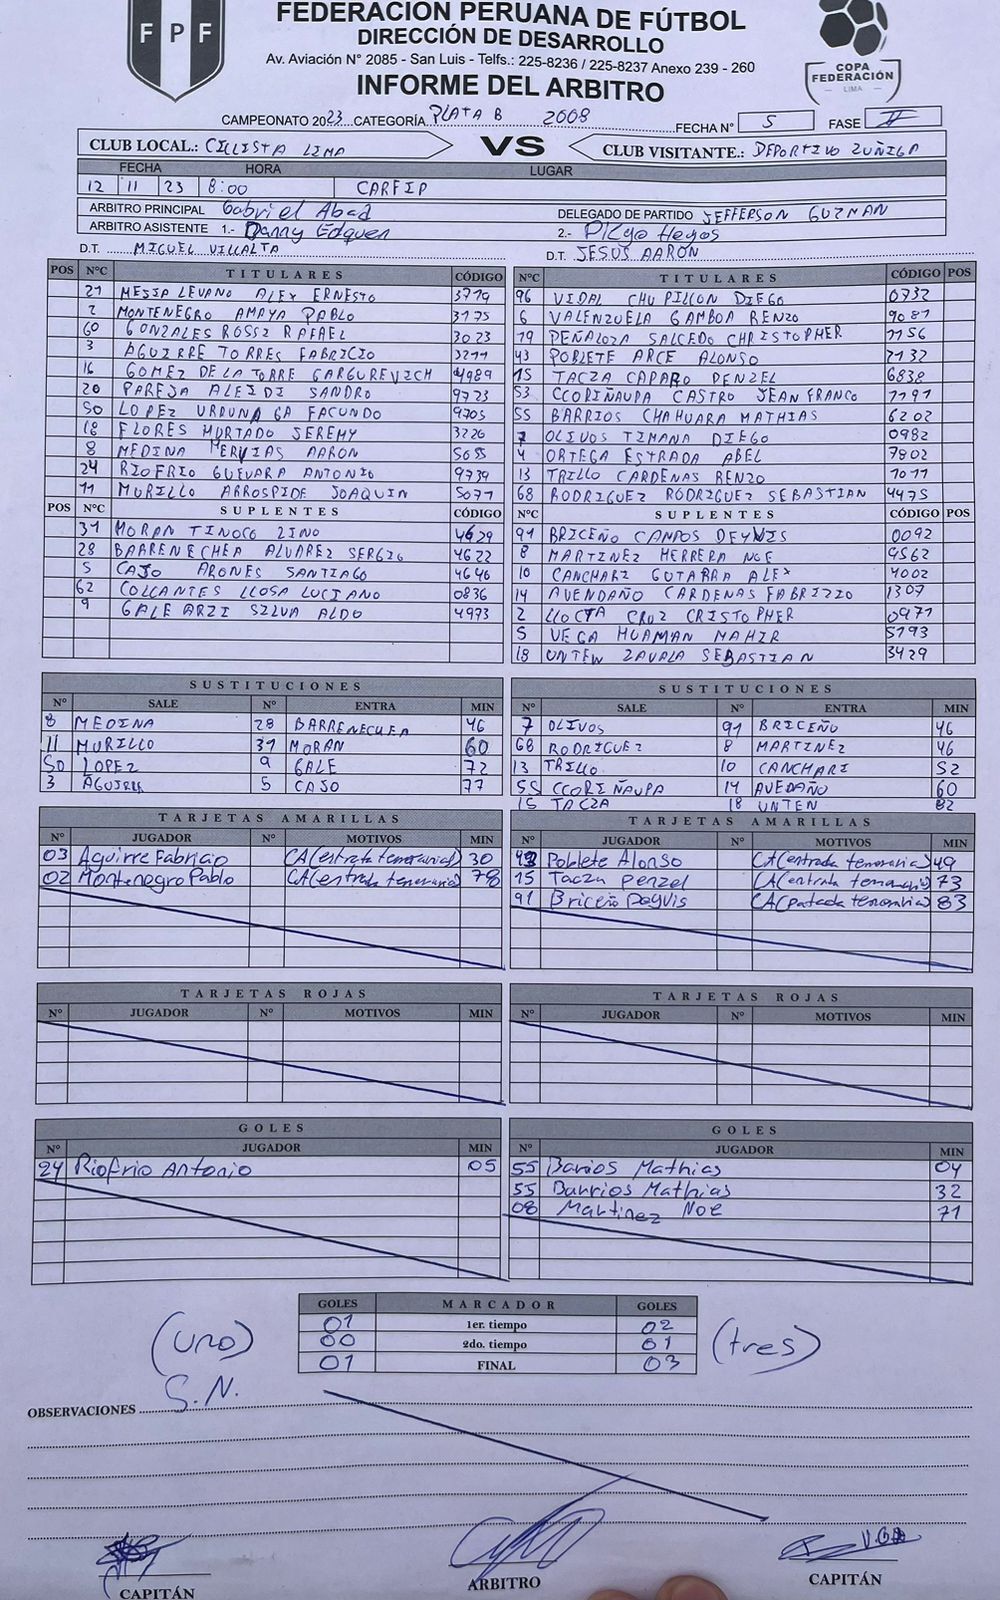 FPF
FEDERACIÓN PERUANA DE FÚTBOL
DIRECCIÓN DE DESARROLLO
Av. Aviación N° 2085 - San Luis - Telfs.: 225-8236 / 225-8237 Anexo 239 - 260
INFORME DEL ARBITRO
COPA FEDERACIÓN
LIMA
CAMPEONATO 2023 CATEGORÍA PLATA B 2008 FECHA N° 5 FASE II
CLUB LOCAL.: CICLISTA LIMA VS CLUB VISITANTE.: DEPORTIVO ZUÑIGA
FECHA HORA LUGAR
12 11 23 8:00 CARFIP
ARBITRO PRINCIPAL Gabriel Abad DELEGADO DE PARTIDO JEFFERSON GUZMAN
ARBITRO ASISTENTE 1.- Danny Edquen 2.- Diego Hegos
D.T. MIGUEL VILLALTA D.T. JESUS AARON
POS N°C TITULARES CÓDIGO N°C TITULARES CÓDIGO POS
21 MESIA LEVANO ALEX ERNESTO 3719 96 VIDAL CHUPILLON DIEGO 0732
2 MONTENEGRO AMAYA PABLO 3175 6 VALENZUELA GAMBOA RENZO 9081
60 GONZALES ROSSI RAFAEL 3023 19 PEÑALOZA SALCEDO CHRISTOPHER 1156
3 AGUIRRE TORRES FABRICIO 3211 43 POBLETE ARCE ALONSO 2132
16 GOMEZ DE LA TORRE GARGUREVICH 4989 15 TACZA CAPARO DENZEL 6838
20 PAREJA ALEJDI SANDRO 9723 53 CCORIÑAUPA CASTRO JEAN FRANCO 1191
50 LOPEZ URDUNAGA FACUNDO 9705 55 BARRIOS CHAHUARA MATHIAS 6202
18 FLORES HURTADO JEREMY 3220 7 OLIVOS TIMANA DIEGO 0982
8 MEDINA MERVIAS AARON 5055 4 ORTEGA ESTRADA ABEL 7802
24 RIOFRIO GUEVARA ANTONIO 9739 13 TRILLO CARDENAS RENZO 7011
11 MURILLO ARROSPIDE JOAQUIN 5071 68 RODRIGUEZ RODRIGUEZ SEBASTIAN 4475
POS N°C SUPLENTES CÓDIGO N°C SUPLENTES CÓDIGO POS
31 MORAN TINOCO ZINO 4629 91 BRICEÑO CAMPOS DEYVIS 0092
28 BARRENECHEA ALVAREZ SERGIO 4622 8 MARTINEZ HERRERA NOE 9562
5 CAJO ARONES SANTIAGO 4646 10 CANCHARI GUTARRA ALEX 4002
62 COLLANTES LLOSA LUCIANO 0836 14 AVENDAÑO CARDENAS FABRIZIO 1307
9 GALE ARZI SILVA ALDO 4973 2 LLOCTA CRUZ CRISTOPHER 0971
5 VEGA HUAMAN MAHIR 5193
18 UNTEN ZAVALA SEBASTIAN 3429
SUSTITUCIONES SUSTITUCIONES
N° SALE N° ENTRA MIN N° SALE N° ENTRA MIN
8 MEDINA 28 BARRENECHEA 46 7 OLIVOS 91 BRICEÑO 46
11 MURILLO 31 MORAN 60 68 RODRIGUEZ 8 MARTINEZ 46
50 LOPEZ 9 GALE 72 13 TRILLO 10 CANCHARI 52
3 AGUIRRE 5 CAJO 77 55 CCORIÑAUPA 14 AVEDAÑO 60
15 TACZA 18 UNTEN 82
TARJETAS AMARILLAS TARJETAS AMARILLAS
N° JUGADOR N° MOTIVOS MIN N° JUGADOR N° MOTIVOS MIN
03 Aguirre Fabricio CA(entrada temeraria) 30 43 Poblete Alonso CA(entrada temeraria) 49
02 Montenegro Pablo CA(entrada temeraria) 78 15 Tacza Penzel CA(entrada temeraria) 73
91 Briceño Deyvis CA(patada temeraria) 83
TARJETAS ROJAS TARJETAS ROJAS
N° JUGADOR N° MOTIVOS MIN N° JUGADOR N° MOTIVOS MIN
GOLES GOLES
N° JUGADOR MIN N° JUGADOR MIN
24 Riofrio Antonio 05 55 Barios Mathias 04
55 Barrios Mathias 32
08 Martinez Noe 71
GOLES MARCADOR GOLES
01 1er. tiempo 02
(uno) 00 2do. tiempo 01 (tres)
01 FINAL 03
OBSERVACIONES S.N.
CAPITÁN ARBITRO CAPITÁN